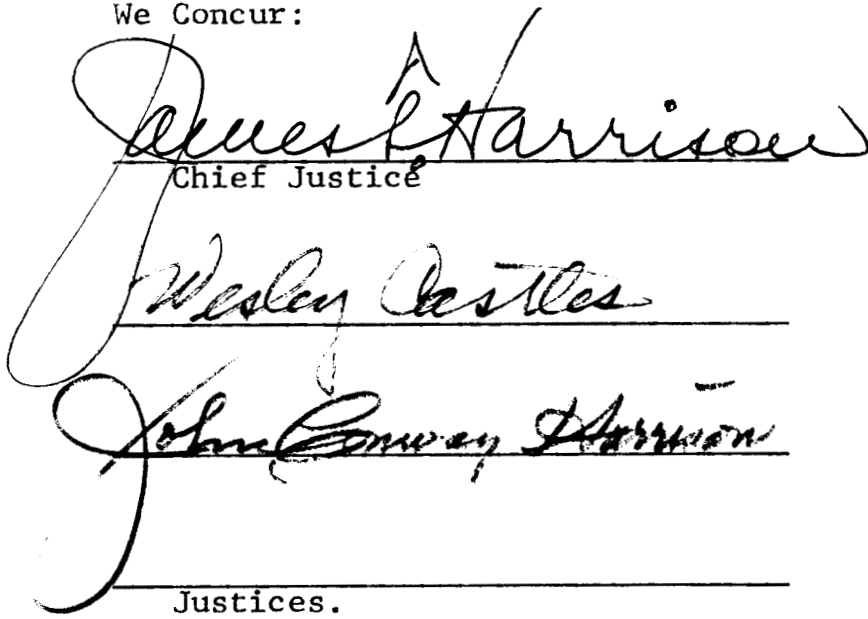 We Concur:
James T. Harrison
Chief Justice
Wesley Castles
John Conway Harrison
Justices.